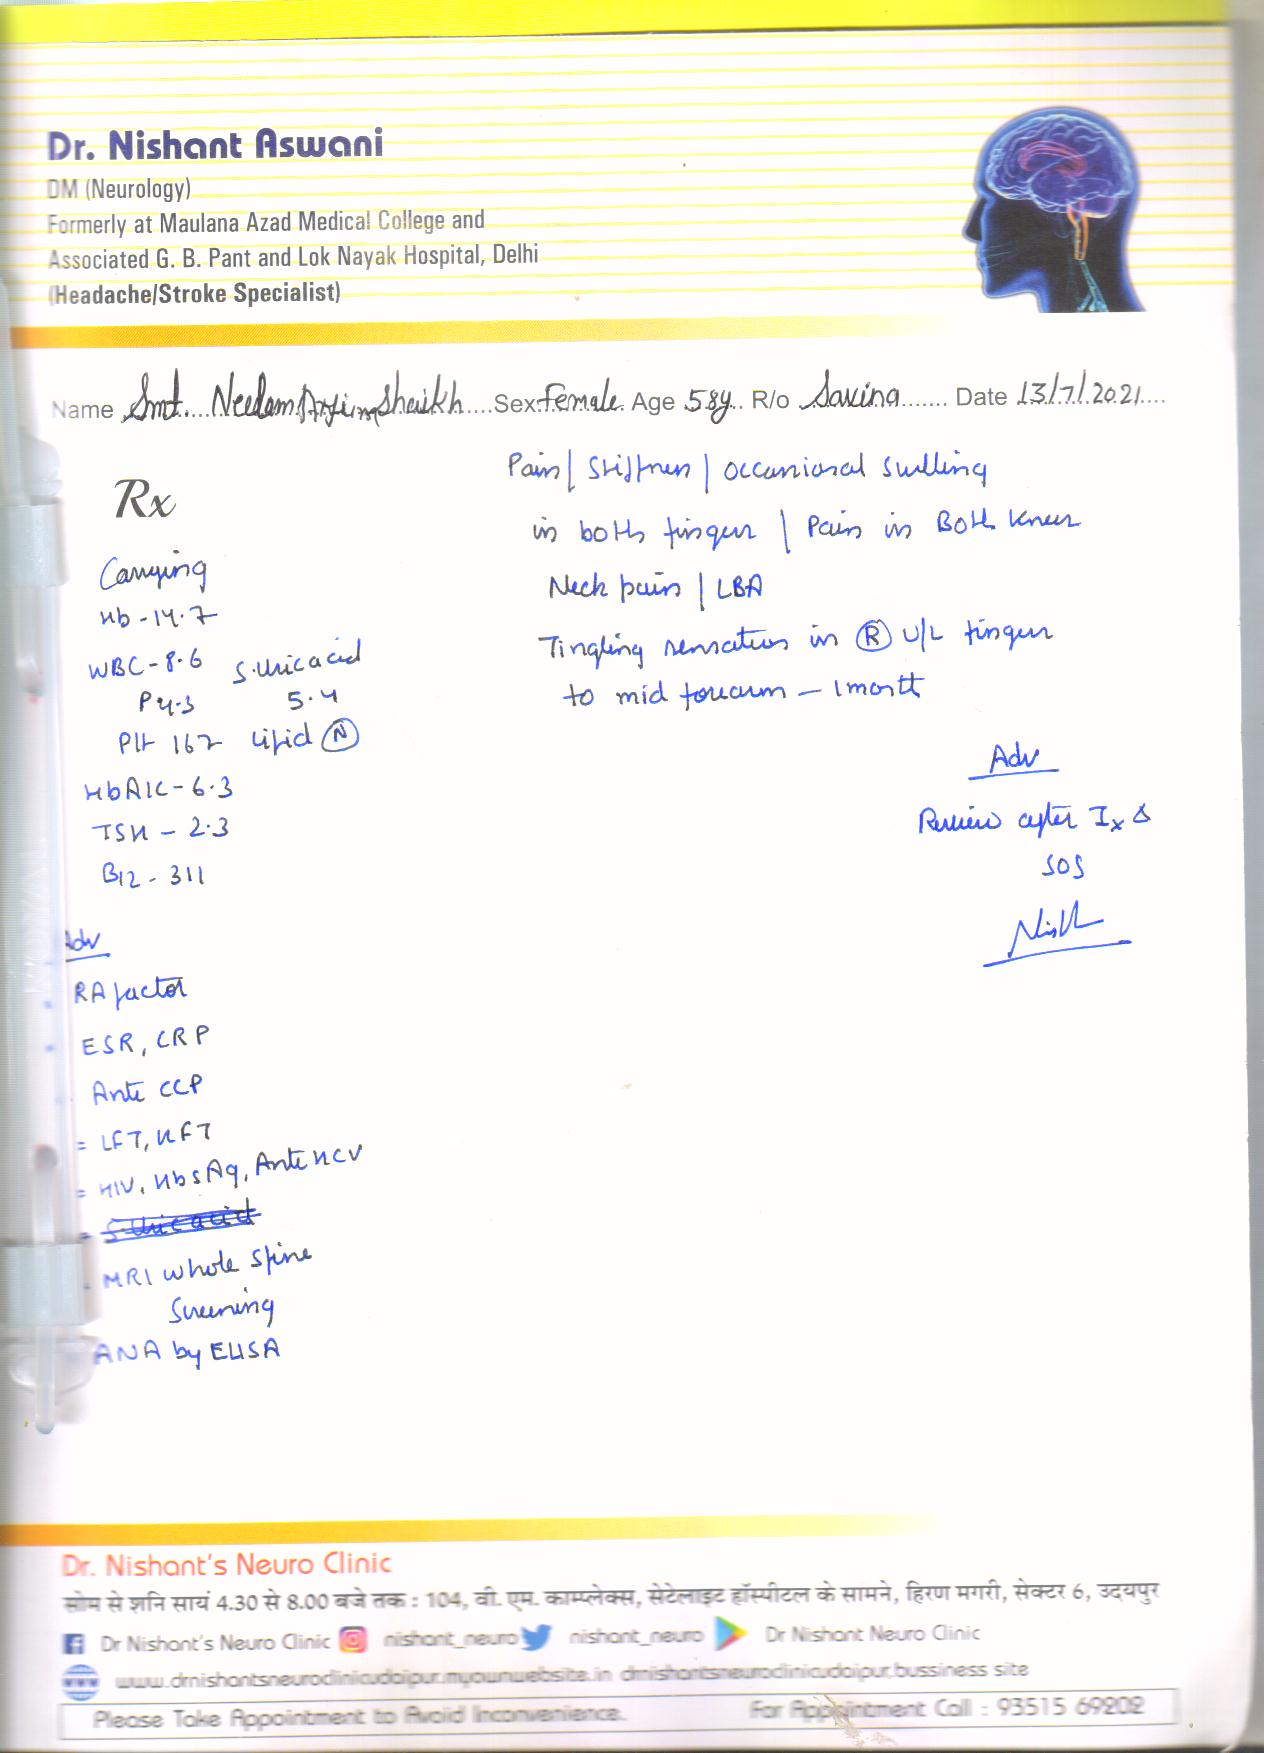 Dr. Nishant Aswani
DM (Neurology)
Formerly at Maulana Azad Medical College and
Associated G. B. Pant and Lok Nayak Hospital, Delhi
(Headache/Stroke Specialist)
Name Smt. Sheikh Sex Female Age 58y R/o Savina Date 13/7/2021
Rx
Pain | Stiffness | occasional swelling
in both fingers | Pain in Both knees
Neck pain | LBA
Tingling sensation in (R) U/L fingers
to mid forearm — 1 month
Carrying
Hb - 14.7
WBC - 8.6 S. uric acid
P 4.3 5.4
Plt 167 Lipid (N)
HbA1C - 6.3
TSH - 2.3
B12 - 311
Adv
Review after Ix &
SOS
Adv
RA factor
ESR, CRP
Anti CCP
= LFT, KFT
= HIV, HbsAg, Anti HCV
= S. Uric acid
- MRI whole spine
Screening
ANA by ELISA
Dr. Nishant's Neuro Clinic
सोम से शनि सायं 4.30 से 8.00 बजे तक : 104, वी. एम. काम्प्लेक्स, सेटेलाइट हॉस्पीटल के सामने, हिरण मगरी, सेक्टर 6, उदयपुर
Dr Nishant's Neuro Clinic nishant_neuro nishant_neuro Dr Nishant Neuro Clinic
www.drnishantsneuroclinicudaipur.myownwebsite.in drnishantsneuroclinicudaipur.bussiness site
Please Take Appointment to Avoid Inconvenience. For Appointment Call : 93515 69202